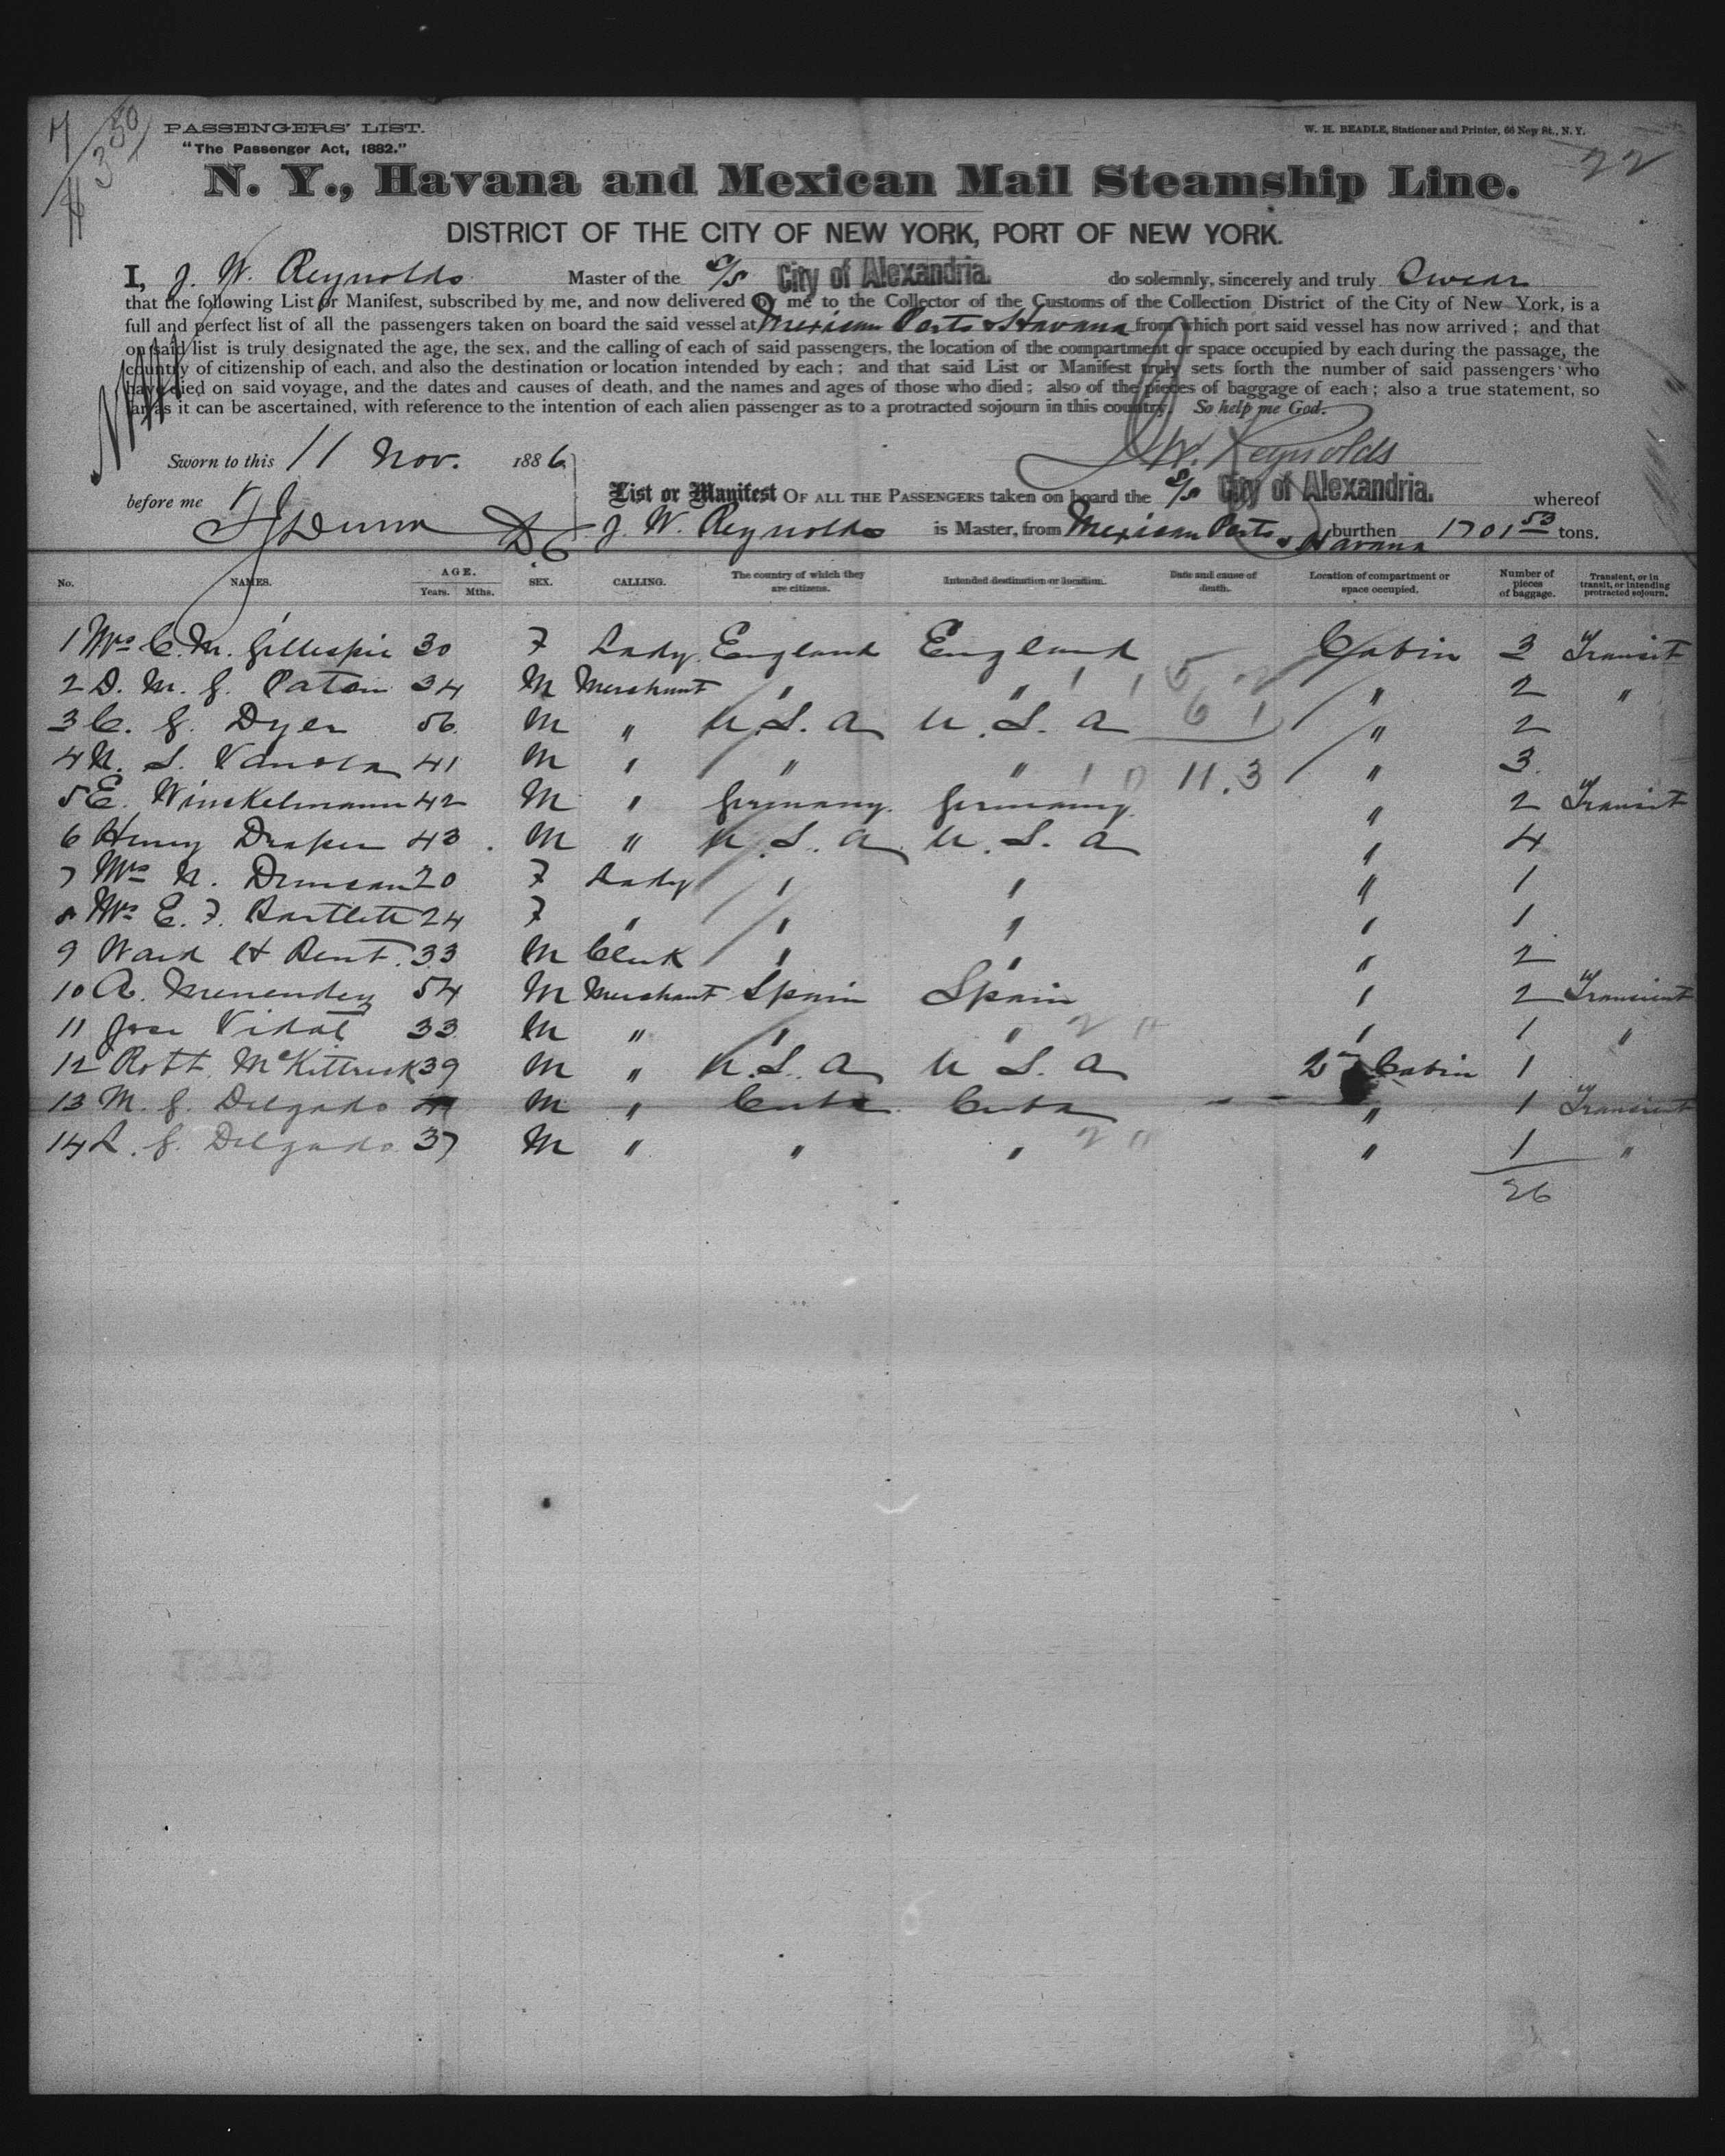 PASSENGERS' LIST.
"The Passenger Act, 1882."
W. H. BEADLE, Stationer and Printer, 66 New St., N. Y.
22
N. Y., Havana and Mexican Mail Steamship Line.
DISTRICT OF THE CITY OF NEW YORK, PORT OF NEW YORK.
I, J. W. Reynolds Master of the S/S City of Alexandria. do solemnly, sincerely and truly Swear
that the following List or Manifest, subscribed by me, and now delivered by me to the Collector of the Customs of the Collection District of the City of New York, is a
full and perfect list of all the passengers taken on board the said vessel at Mexican Ports & Havana from which port said vessel has now arrived; and that
on said list is truly designated the age, the sex, and the calling of each of said passengers, the location of the compartment or space occupied by each during the passage, the
country of citizenship of each, and also the destination or location intended by each; and that said List or Manifest truly sets forth the number of said passengers who
have died on said voyage, and the dates and causes of death, and the names and ages of those who died; also of the pieces of baggage of each; also a true statement, so
far as it can be ascertained, with reference to the intention of each alien passenger as to a protracted sojourn in this country. So help me God.
J W. Reynolds
Sworn to this 11 Nov. 1886
before me
List or Manifest OF ALL THE PASSENGERS taken on board the S/S City of Alexandria. whereof
J. W. Reynolds is Master, from Mexican Ports & Havana burthen 1701 53 tons.
No. NAMES. AGE. Years. Mths. SEX. CALLING. The country of which they are citizens. Intended destination or location. Date and cause of death. Location of compartment or space occupied. Number of pieces of baggage. Transient, or in transit, or intending protracted sojourn.
1 Mrs C. M. Gillespie 30 F Lady England England Cabin 3 Transit
2 D. M. J. Paton 34 M Merchant " " " 2 "
3 C. J. Dyer 56 M " U.S.A U.S.A " 2
4 N. S. 41 M " " " " 3
5 E. Winckelmann 42 M " Germany Germany " 2 Transit
6 Henry Draper 43 M " U.S.A U.S.A " 4
7 Mrs N. Duncan 20 F Lady " " " 1
8 Mrs E. F. Bartlett 24 F " " " " 1
9 Ward 33 M Clerk " " " 2
10 A. Menendez 54 M Merchant Spain Spain " 2 Transient
11 Jose Vidal 33 M " " " " 1 "
12 Robt. McKittrick 39 M " U.S.A U.S.A 2nd Cabin 1
13 M. J. Delgado M " Cuba Cuba " 1 Transient
14 L. J. Delgado 37 M " " " " 1 "
26